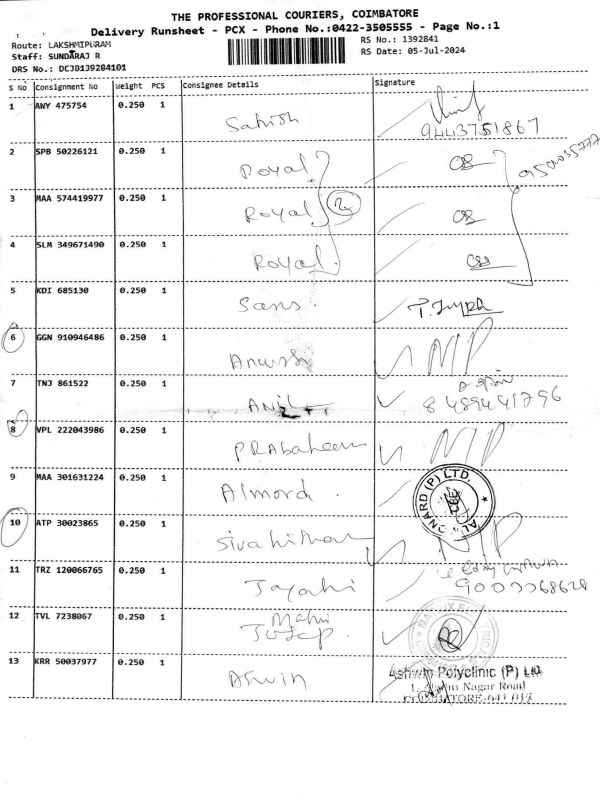 THE PROFESSIONAL COURIERS, COIMBATORE
Delivery Runsheet - PCX - Phone No.:0422-3505555 - Page No.:1
Route: LAKSHMIPURAM
Staff: SUNDARAJ R
DRS No.: DCJB139284101
RS No.: 1392841
RS Date: 05-Jul-2024
S No Consignment No Weight PCS Consignee Details Signature
1 AWY 475754 0.250 1 Sathish
9443751867
2 SPB 50226121 0.250 1 Royal
3 MAA 574419977 0.250 1 Royal 2
4 SLM 349671490 0.250 1 Royal
5 KDI 685130 0.250 1 Sans.
6 GGN 910946486 0.250 1 Anush NIP
7 TNJ 861522 0.250 1 ANIL
8489441796
8 VPL 222043986 0.250 1 NIP
9 MAA 301631224 0.250 1 Almord.
10 ATP 30023865 0.250 1 NIP
11 TRZ 120066765 0.250 1
12 TVL 7238067 0.250 1 Mahi
13 KRR 50037977 0.250 1 Ashwin
Ashwin Polyclinic (P) Ltd
Nagar Road